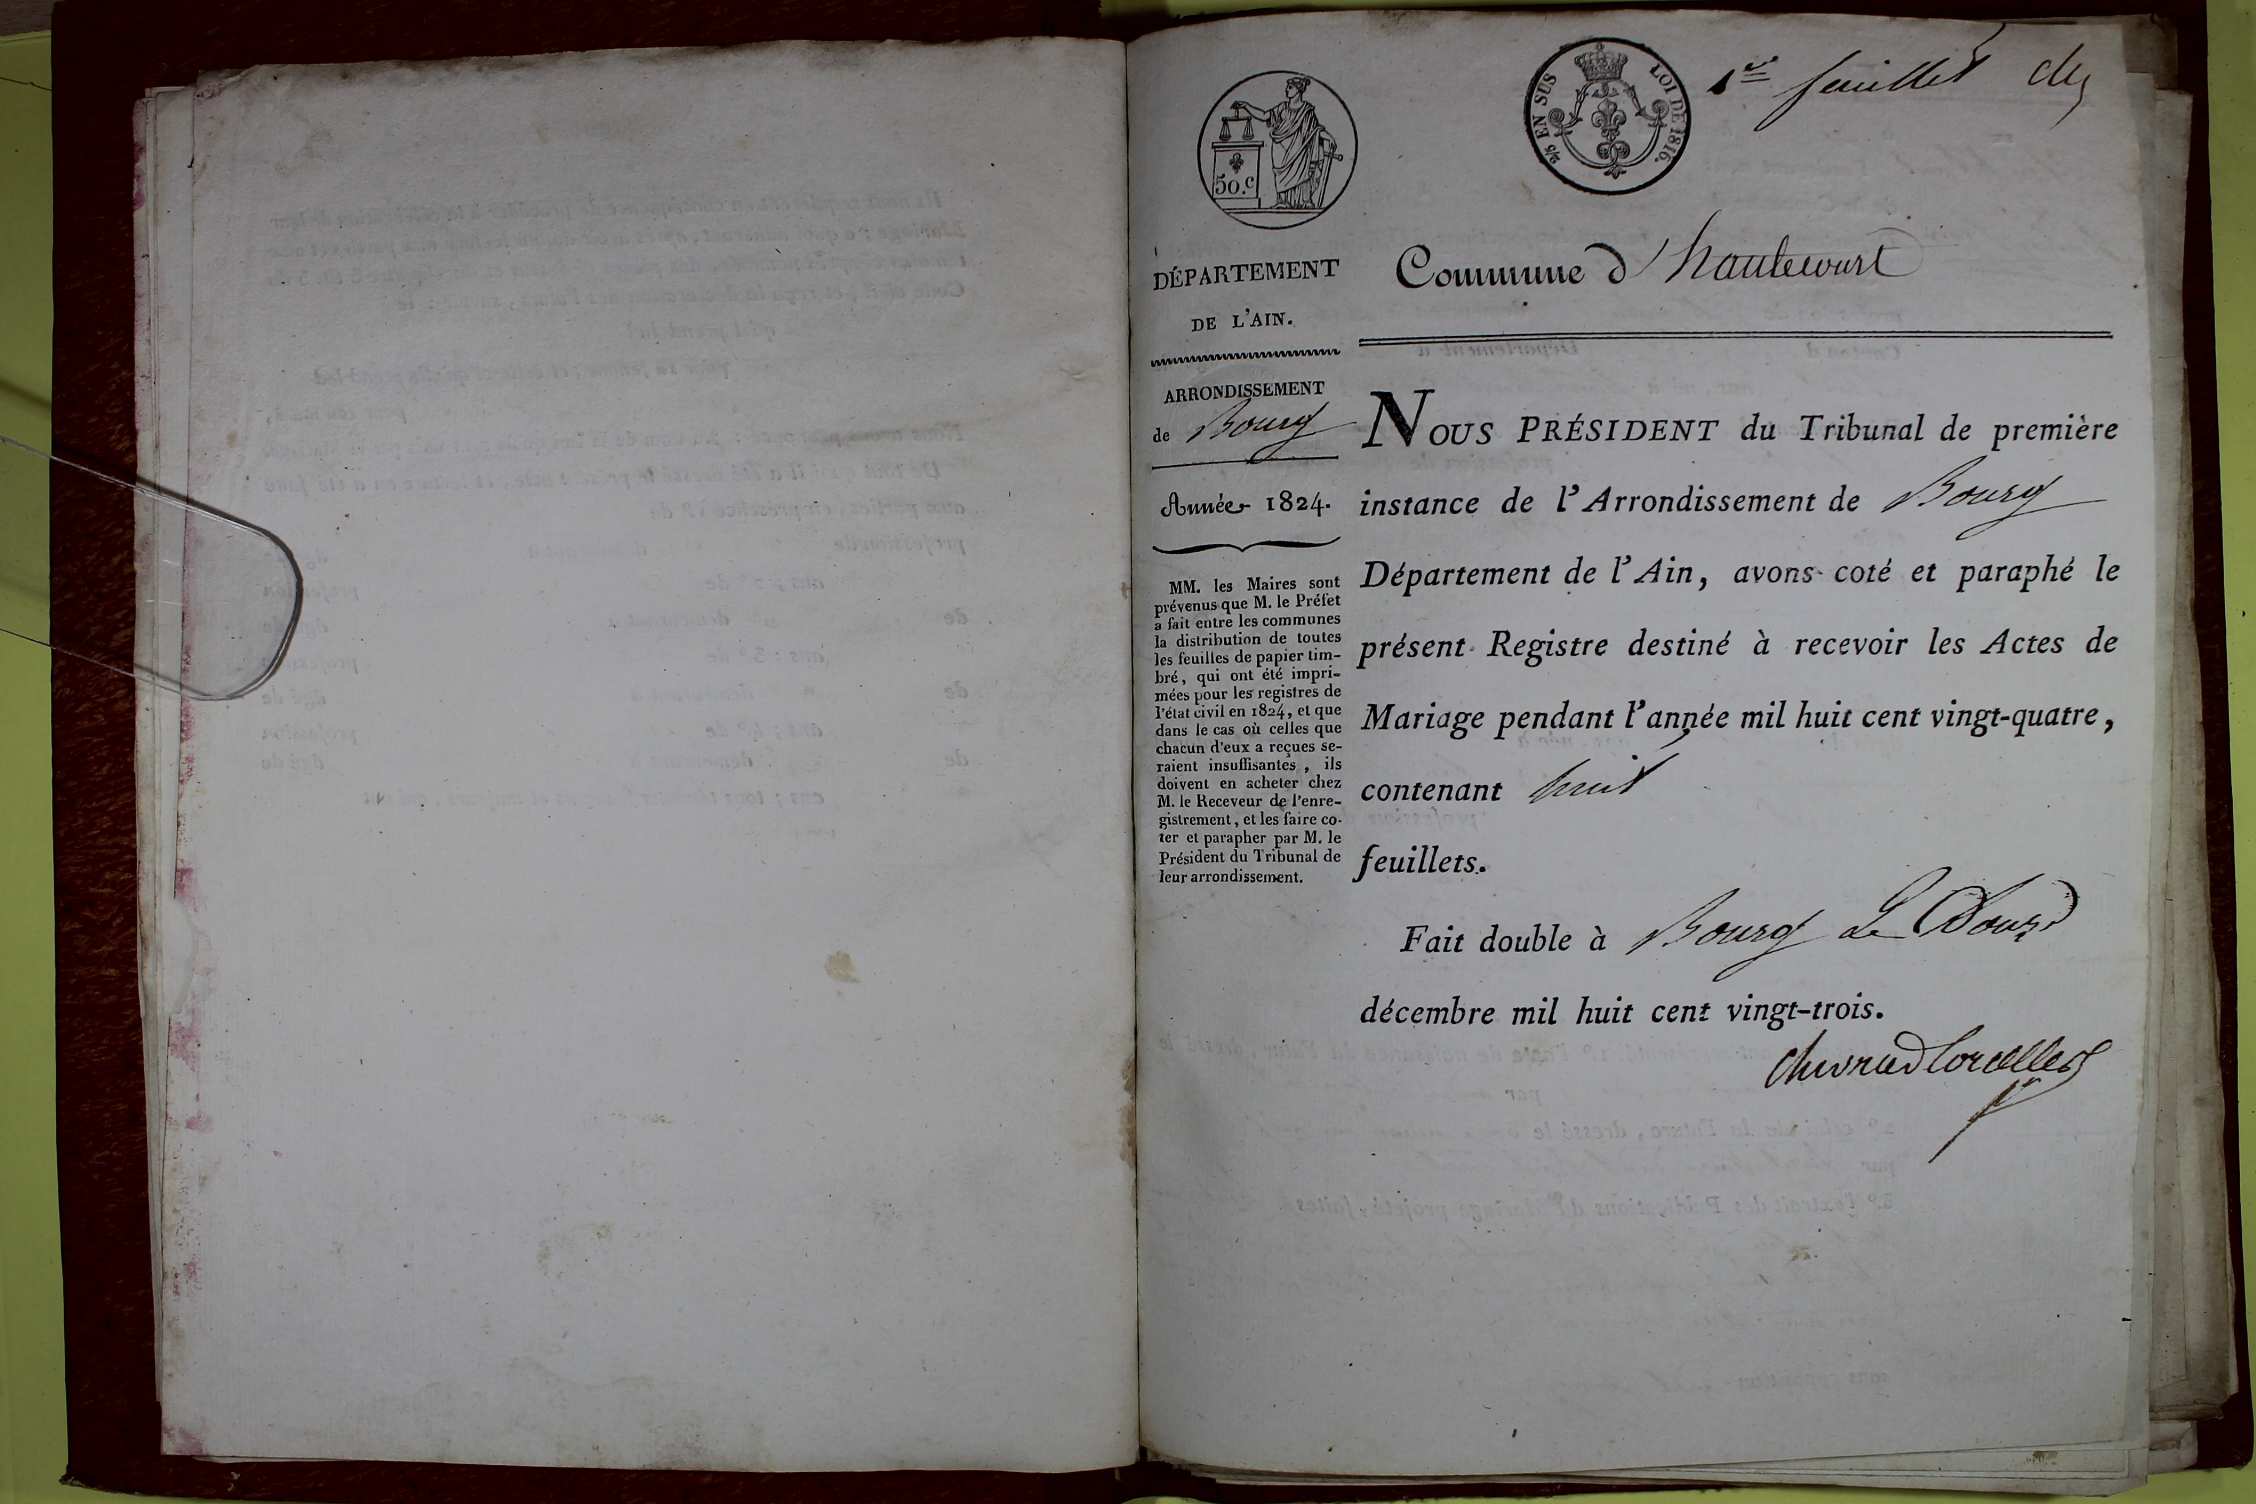 1er feuillet
50.c
2/5 EN SUS
LOI DE 1816.
DÉPARTEMENT
DE L'AIN.
ARRONDISSEMENT
de Bourg
Année 1824.
MM. les Maires sont
prévenus que M. le Préfet
a fait entre les communes
la distribution de toutes
les feuilles de papier tim-
bré, qui ont été impri-
mées pour les registres de
l'état civil en 1824, et que
dans le cas où celles que
chacun d'eux a reçues se-
raient insuffisantes, ils
doivent en acheter chez
M. le Receveur de l'enre-
gistrement, et les faire co-
ter et parapher par M. le
Président du Tribunal de
leur arrondissement.
Commune d'hautecourt
NOUS PRÉSIDENT du Tribunal de première
instance de l'Arrondissement de Bourg
Département de l'Ain, avons coté et paraphé le
présent Registre destiné à recevoir les Actes de
Mariage pendant l'année mil huit cent vingt-quatre,
contenant huit
feuillets.
Fait double à Bourg Le Douze
décembre mil huit cent vingt-trois.